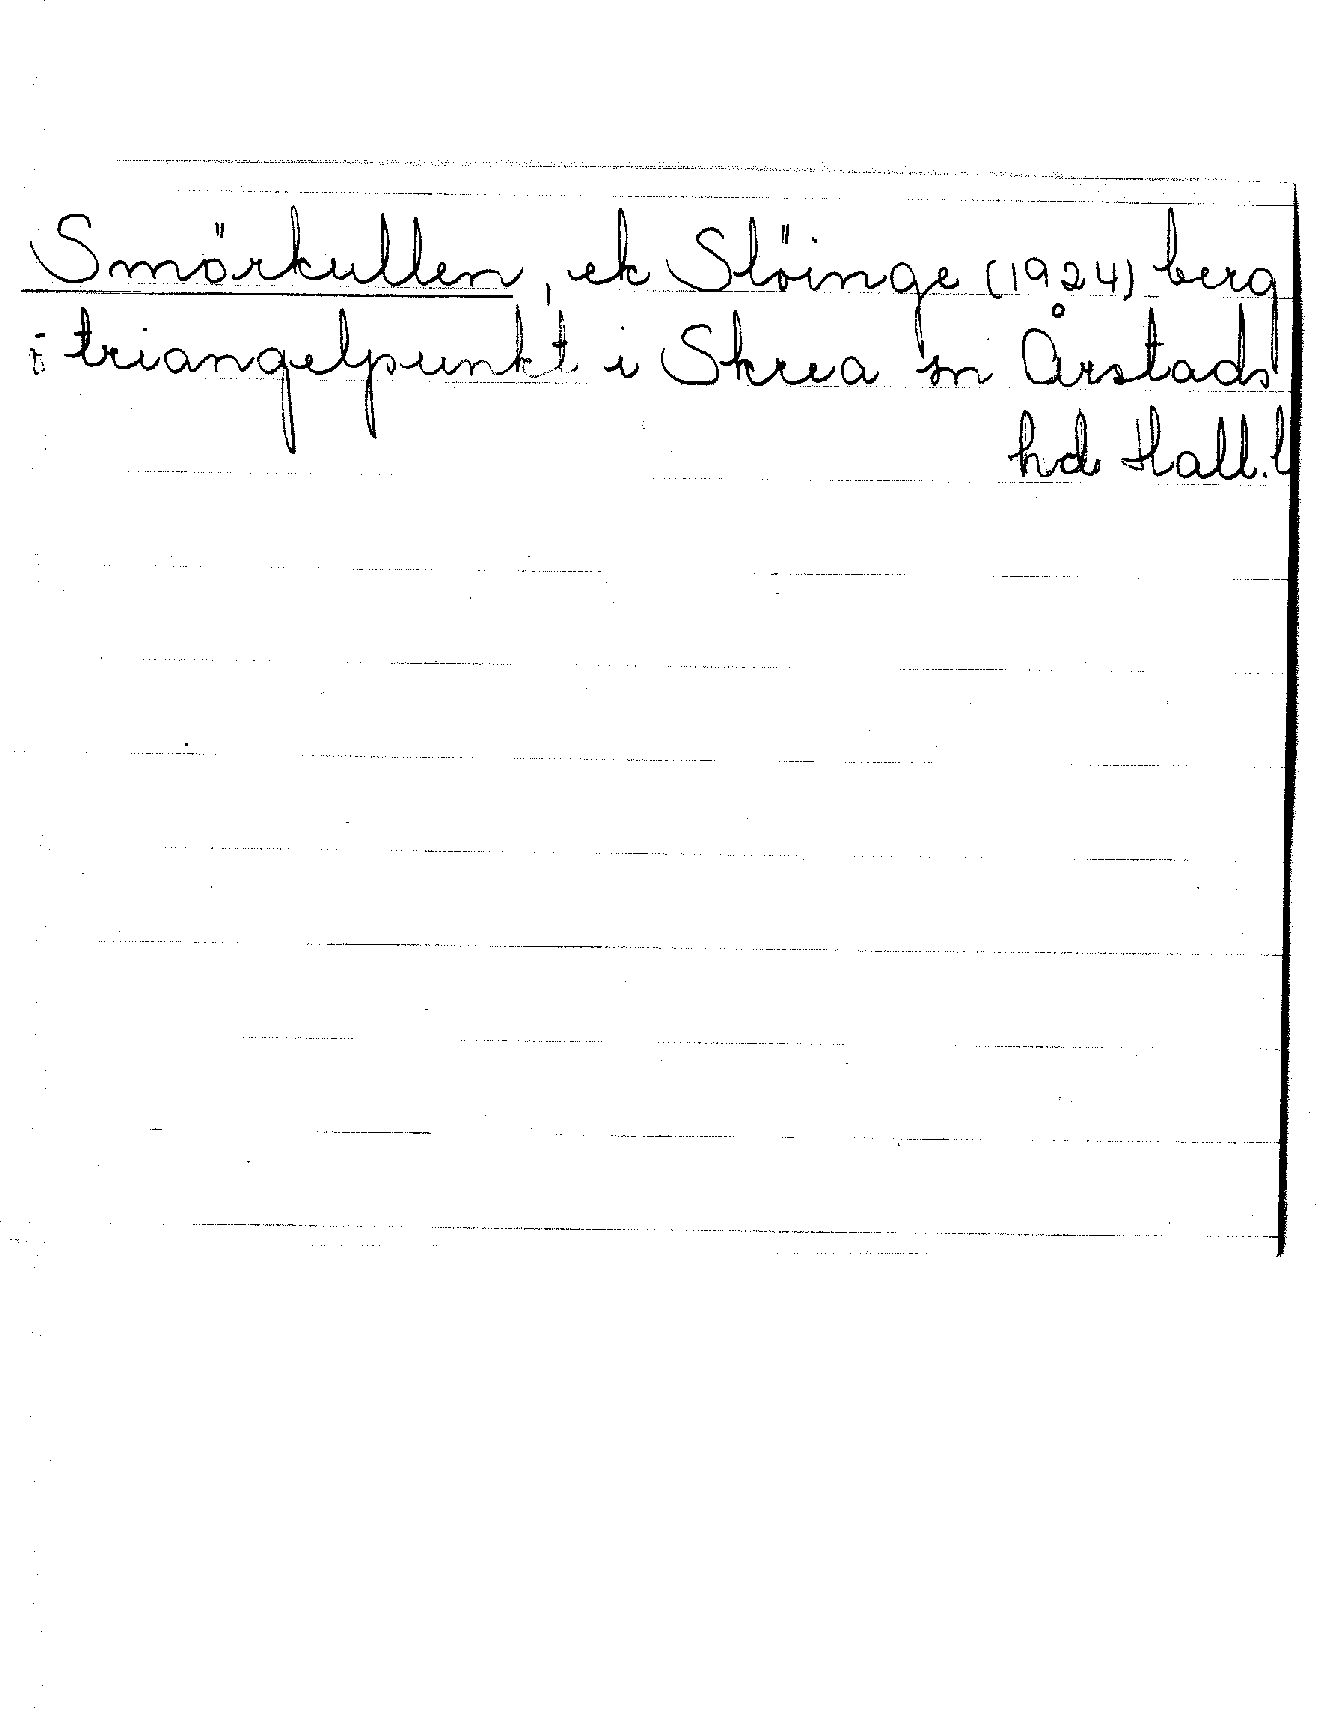 Smörkullen, ek Slöinge (1924) berg
i triangelpunkt i Skrea sn Årstads
hd Hall.l